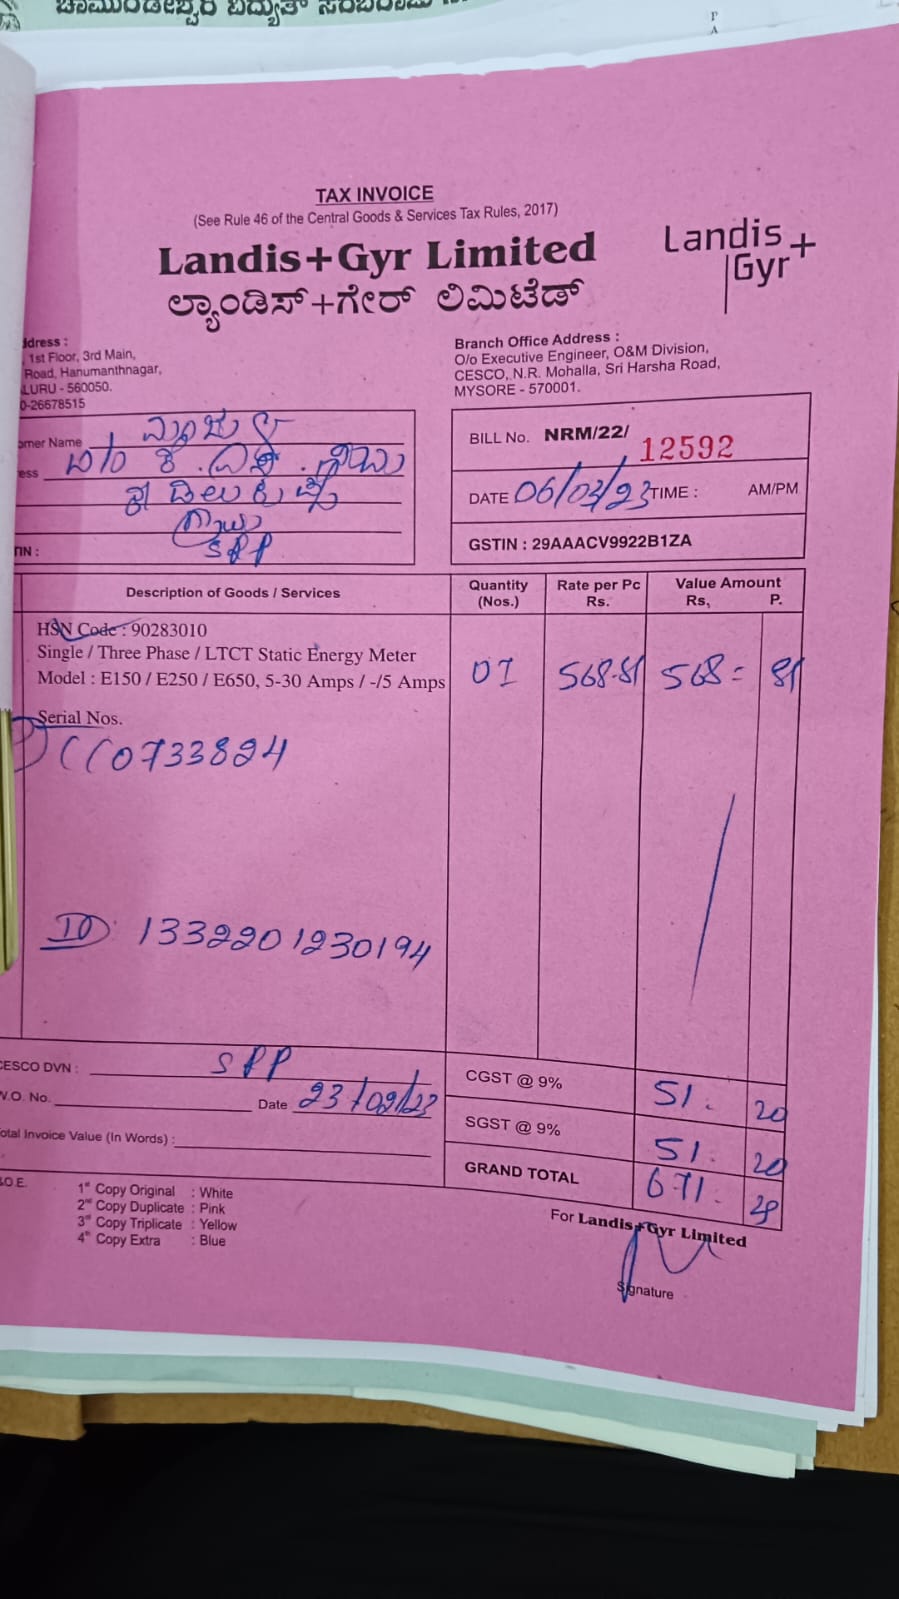 ಚಾಮುಂಡೇಶ್ವರಿ ವಿದ್ಯುತ್
TAX INVOICE
(See Rule 46 of the Central Goods & Services Tax Rules, 2017)
Landis+Gyr Limited
ಲ್ಯಾಂಡಿಸ್+ಗೇರ್ ಲಿಮಿಟೆಡ್
Landis+
Gyr
ddress :
1st Floor, 3rd Main,
Road, Hanumanthnagar,
LURU - 560050.
0-26678515
Branch Office Address :
O/o Executive Engineer, O&M Division,
CESCO, N.R. Mohalla, Sri Harsha Road,
MYSORE - 570001.
omer Name
ess
SPP
TIN :
BILL No. NRM/22/ 12592
DATE 06/03/23 TIME : AM/PM
GSTIN : 29AAACV9922B1ZA
Description of Goods / Services Quantity (Nos.) Rate per Pc Rs. Value Amount Rs, P.
HSN Code : 90283010
Single / Three Phase / LTCT Static Energy Meter
Model : E150 / E250 / E650, 5-30 Amps / -/5 Amps 01 568.81 568= 81
Serial Nos.
CC0733824
ID: 1332201230194
CESCO DVN : SPP
W.O. No. Date 23/02/23
otal Invoice Value (In Words) :
CGST @ 9% 51. 20
SGST @ 9% 51. 20
GRAND TOTAL 671.
&O.E.
1st Copy Original : White
2nd Copy Duplicate : Pink
3rd Copy Triplicate : Yellow
4th Copy Extra : Blue
For Landis+Gyr Limited
Signature